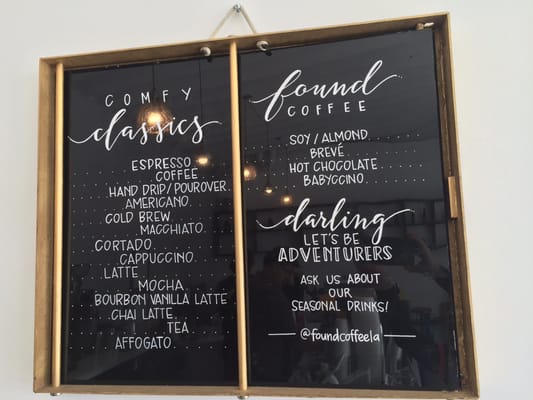 COMFY
classics
ESPRESSO
COFFEE
HAND DRIP/POUROVER
AMERICANO
COLD BREW
MACCHIATO
CORTADO
CAPPUCCINO
LATTE
MOCHA
BOURBON VANILLA LATTE
CHAI LATTE
TEA
AFFOGATO
found
COFFEE
SOY/ALMOND
BREVÉ
HOT CHOCOLATE
BABYCCINO
darling
LET'S BE
ADVENTURERS
ASK US ABOUT
OUR
SEASONAL DRINKS!
@foundcoffeela